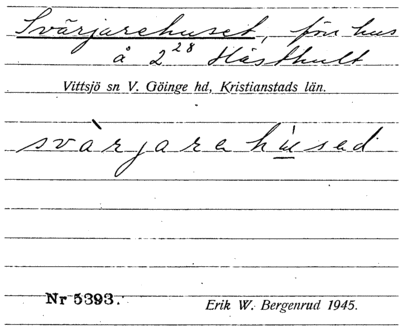 Svärjarehuset, förr hus
å 2²⁸ Hästhult
Vittsjö sn V. Göinge hd, Kristianstads län.
svàrjarehu̲sed
Nr 5393.
Erik W. Bergenrud 1945.